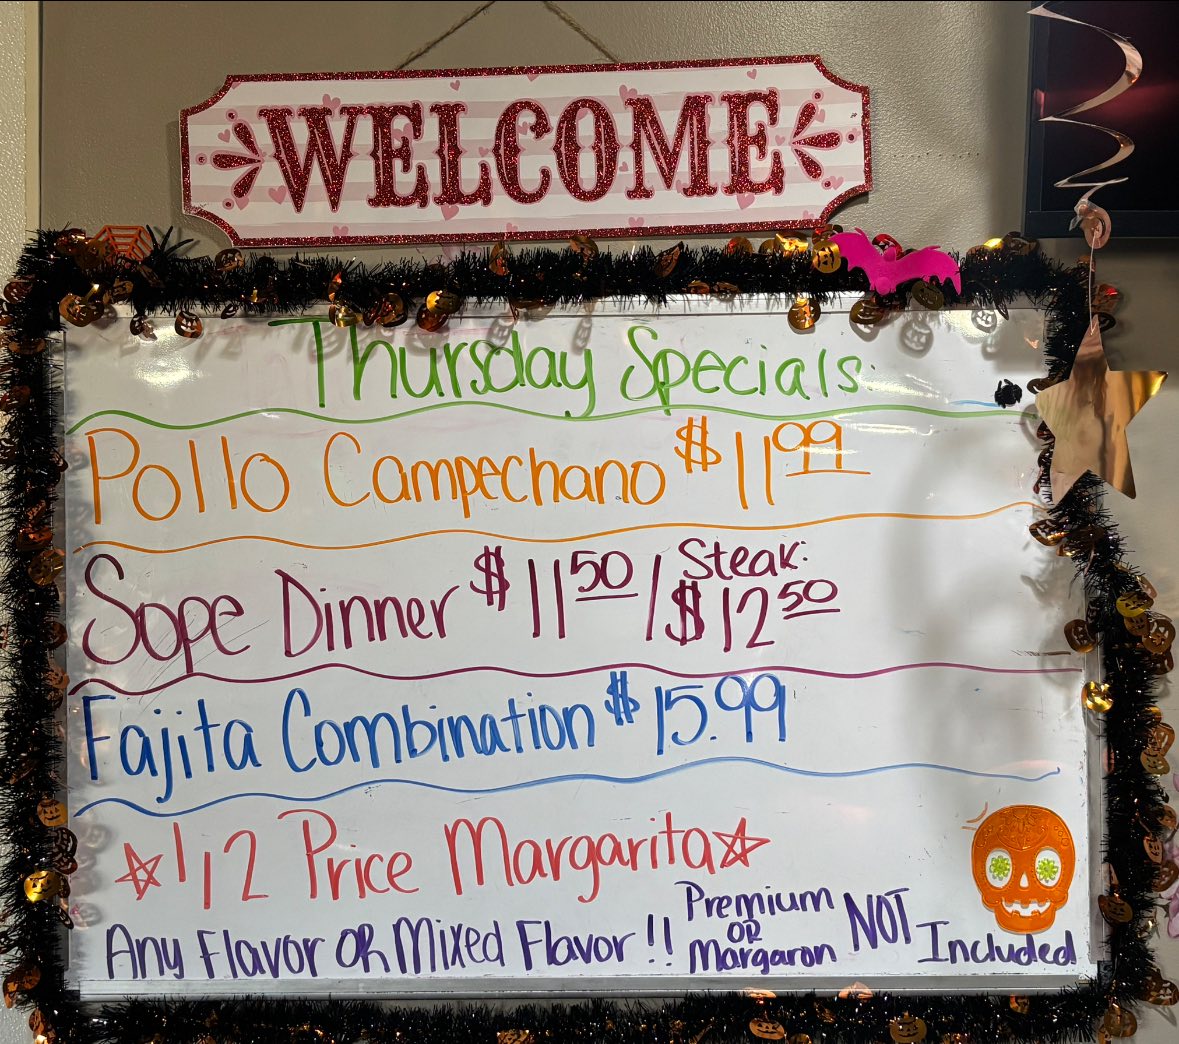 WELCOME
Thursday Specials:
Pollo Campechano $11.99
Sope Dinner $11.50 / Steak: $12.50
Fajita Combination $15.99
1/2 Price Margarita
Any Flavor OR Mixed Flavor!! Premium OR Margaron NOT Included